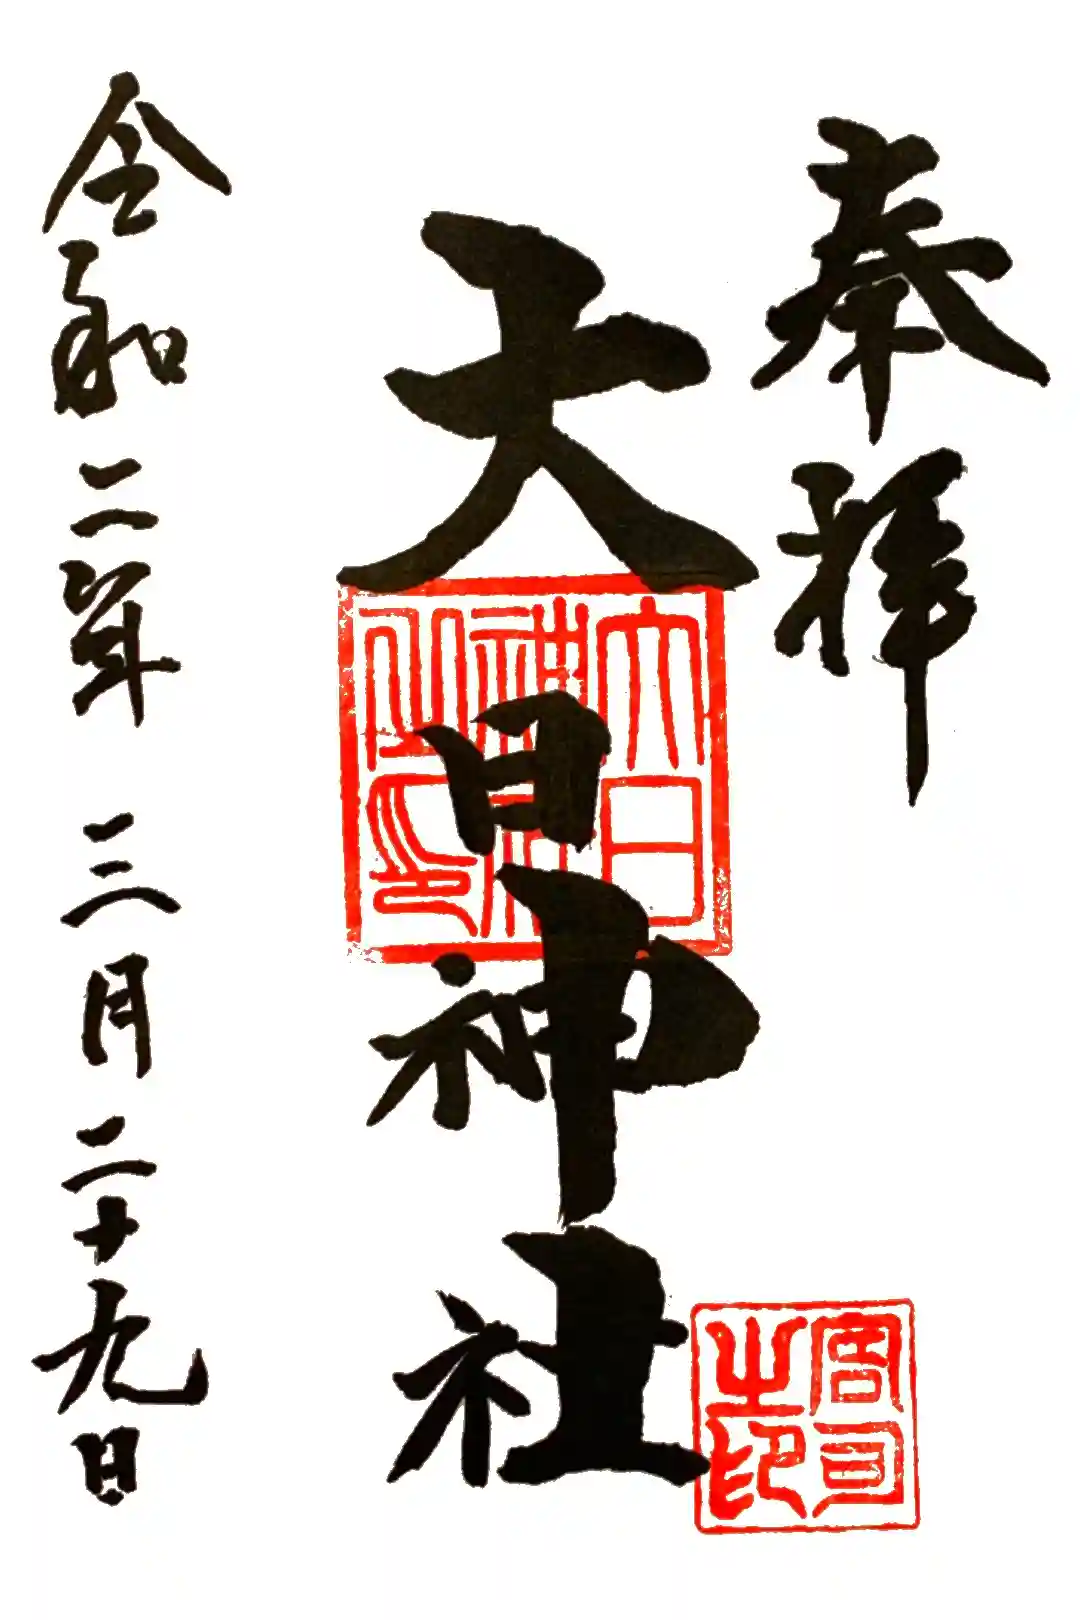 奉拝
大日神社
大日神社之印
宮司之印
令和二年 三月二十九日